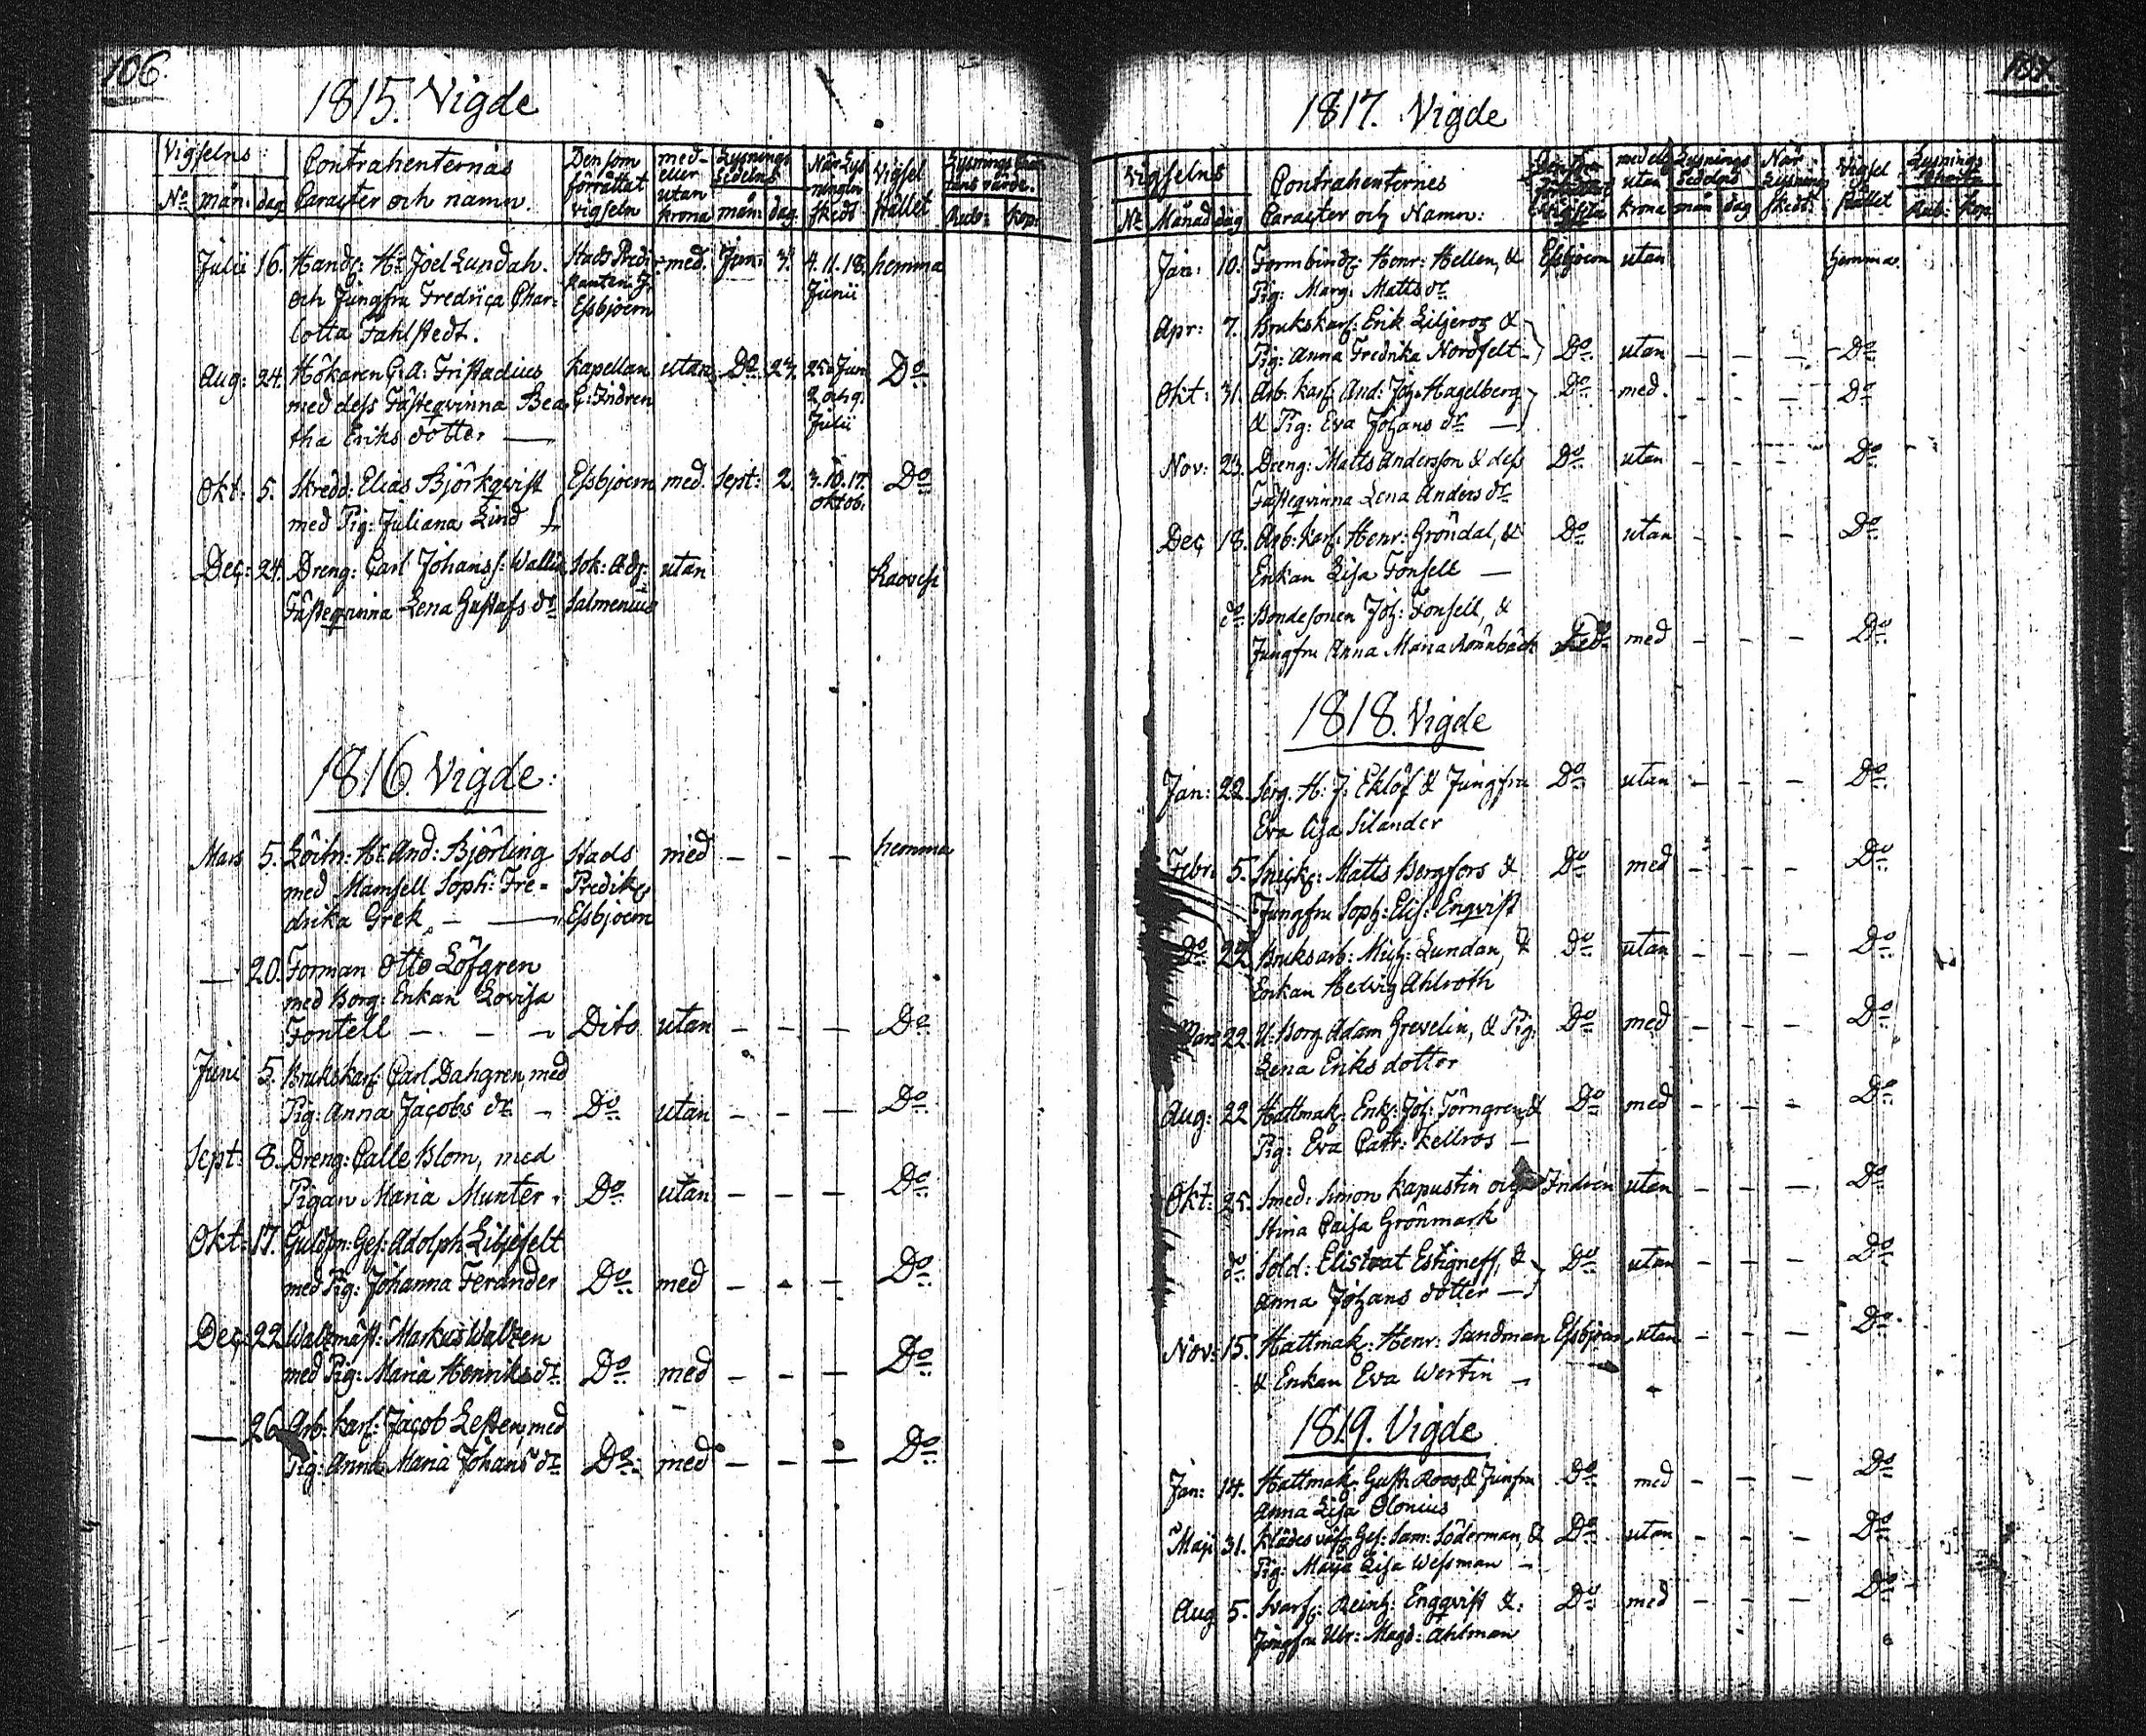 106.
1815. Vigde
Vigselns: Contrahenternas Den som med- Lysnings När Lys Vigsel Lysnings
förrättat eller sedelns ningen stället
No mån: dag Caracter och namn. vigseln utan krona mån: dag. skedt Rub: kop:
Julii 16. Handl: Hr Joel Lundah. Stads Predi med. Jun: 3. 4. 11. 18. hemma
och Jungfru Fredrica Char= kanten J: Junii
lotta Fahlstedt. Essbjoern
Aug: 24. Hökaren G: A: Fristadius Kapellan utan Do 23. 25 Jun Do
med dess Fästeqvinna Bea G: Fridren 2 och 9
tha Eriks dotter — Julii
Okt: 5. Skredd: Elias Björkqvist Essbjoern med. Sept: 2. 3. 10. 17. Do
med Pig: Juliana Lind oktob:
Dec: 24. Dreng: Carl Johanss: Wallin Sok: Adj: utan
Fästeqvinna Lena Gustafs dr Salmenius
1816. Vigde:
Mars 5. Löitn: Hr And: Björling Stads med — — — hemma
med Mamsell Soph: Fre= Predik
drika Grek — — Essbjoern
— 20. Forman Otto Löfgren
med Borg: Enkan Lovisa
Fontell — — — Dito utan — — — Do
Juni 5. Brukskarl: Carl Dahgren, med
Pig: Anna Jacobs dr — Do utan — — — Do
Sept: 8. Dreng: Calle Blom, med
Pigan Maria Munter. Do utan — — — Do
Okt: 17. Guldsm: Ges: Adolph Liljefelt
med Pig: Johanna Ferander Do med — — — Do
Dec: 22 Waktmäst: Markus Waltzen
med Pig: Maria Henriks dr Do med — — — Do
— 26 Arb: karl: Jacob Lesten, med
Pig: Anna Maria Johans dr Do med — — — Do
107.
1817. Vigde
Vigselns Contrahenternes med ell Lysnings När Vigsel Lysnings
utan seddelns Lysning stället
No Månad dag Caracter och Namn: krona mån dag skedt: Rub: kop
Jan: 10. Formbind: Henr: Hellen, & Essbjoern utan hemma.
Pig: Marg: Matts dr
Apr: 7. Brukskarl: Erik Liljeros &
Pig: Anna Fredrika Nordfelt Do utan — — — Do
Okt: 31. Arb: karl: And: Joh: Hagelberg Do med. — — — Do
& Pig: Eva Johans dr —
Nov: 23. Dreng: Matts Andersson & dess Do utan — — — Do
Fästeqvinna Lena Anders dr
Dec 18. Arb: karl: Henr: Gröndal, & Do utan — — — Do
Enkan Lisa Fonsell —
do Bondesonen Joh: Fonsell, &
Jungfru Anna Maria Rönnbäck med — — — Do
1818. Vigde
Jan: 22. Serg. H: J: Eklöf & Jungfru Do utan — — — Do
Eva Lisa Silander
Febr: 5. Snick: Matts Bergfors & Do med — — — Do
Jungfru Soph: Elis: Enqvist
Do 22. Bruksarb: Mich: Lundan, & Do utan — — — Do
Enkan Hedvig Ahlroth
Mars 22. U: Borg Adam Grevelin, & Pig: Do med — — — Do
Lena Eriks dotter
Aug: 22 Hattmak: Enk: Joh: Törngren & Do med — — — Do
Pig: Eva Catr: Kellros —
Okt: 25. Smed: Simon Kapustin och Fridren utan — — — Do
Stina Caisa Grönmark
do Sold: Elistrat Estigneff, & Do utan — — — Do
Anna Johans dotter —
Nov: 15. Hattmak: Henr: Sandman Essbjoern utan — — — Do
& Enkan Eva Wertin —
1819. Vigde
Jan: 14. Hattmak: Gust: Roos, & Junfru Do med — — — Do
Anna Lisa Olonius
Maji 31. Klädesväf: Ges: Sam: Söderman, & Do utan — — — Do
Pig: Maja Lisa Wessman —
Aug 5. Svarf: Reinh: Engqvist & Do med — — — Do
Jungfru Ulr: Magd: Ahlman